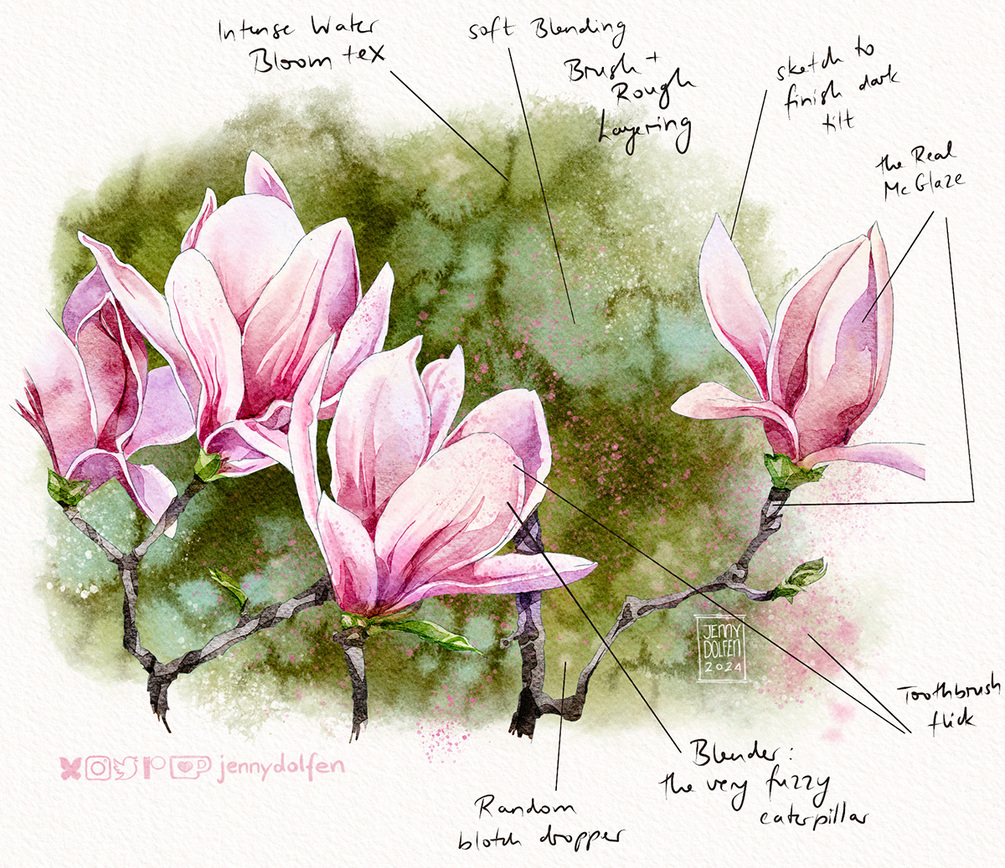 Intense Water
Bloom tex
soft Blending
Brush +
Rough
Layering
sketch to
finish dark
tilt
the Real
McGlaze
JENNY
DOLFEN
2024
Toothbrush
flick
Blender:
the very fuzzy
caterpillar
Random
blotch dropper
jennydolfen